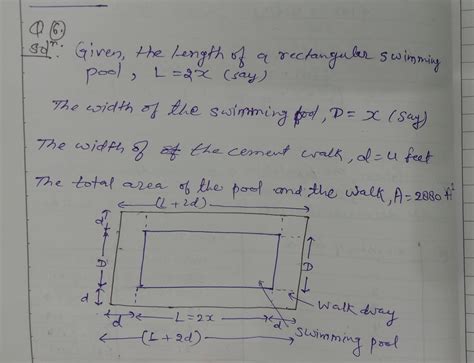 Q 6.
Solⁿ: Given, the Length of a rectangular swimming
pool, L = 2x (say)
The width of the swimming pool, D = x (say)
The width of the cement walk, d = 4 feet
The total area of the pool and the walk, A = 2880 ft²
(L + 2d)
d
D
d
D
Walk way
d
L = 2x
d
swimming pool
(L + 2d)